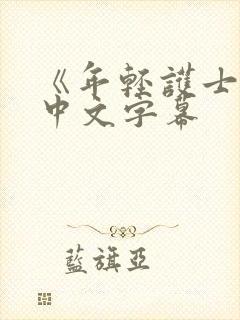 《年輕護士
中文字幕
藍旗亞